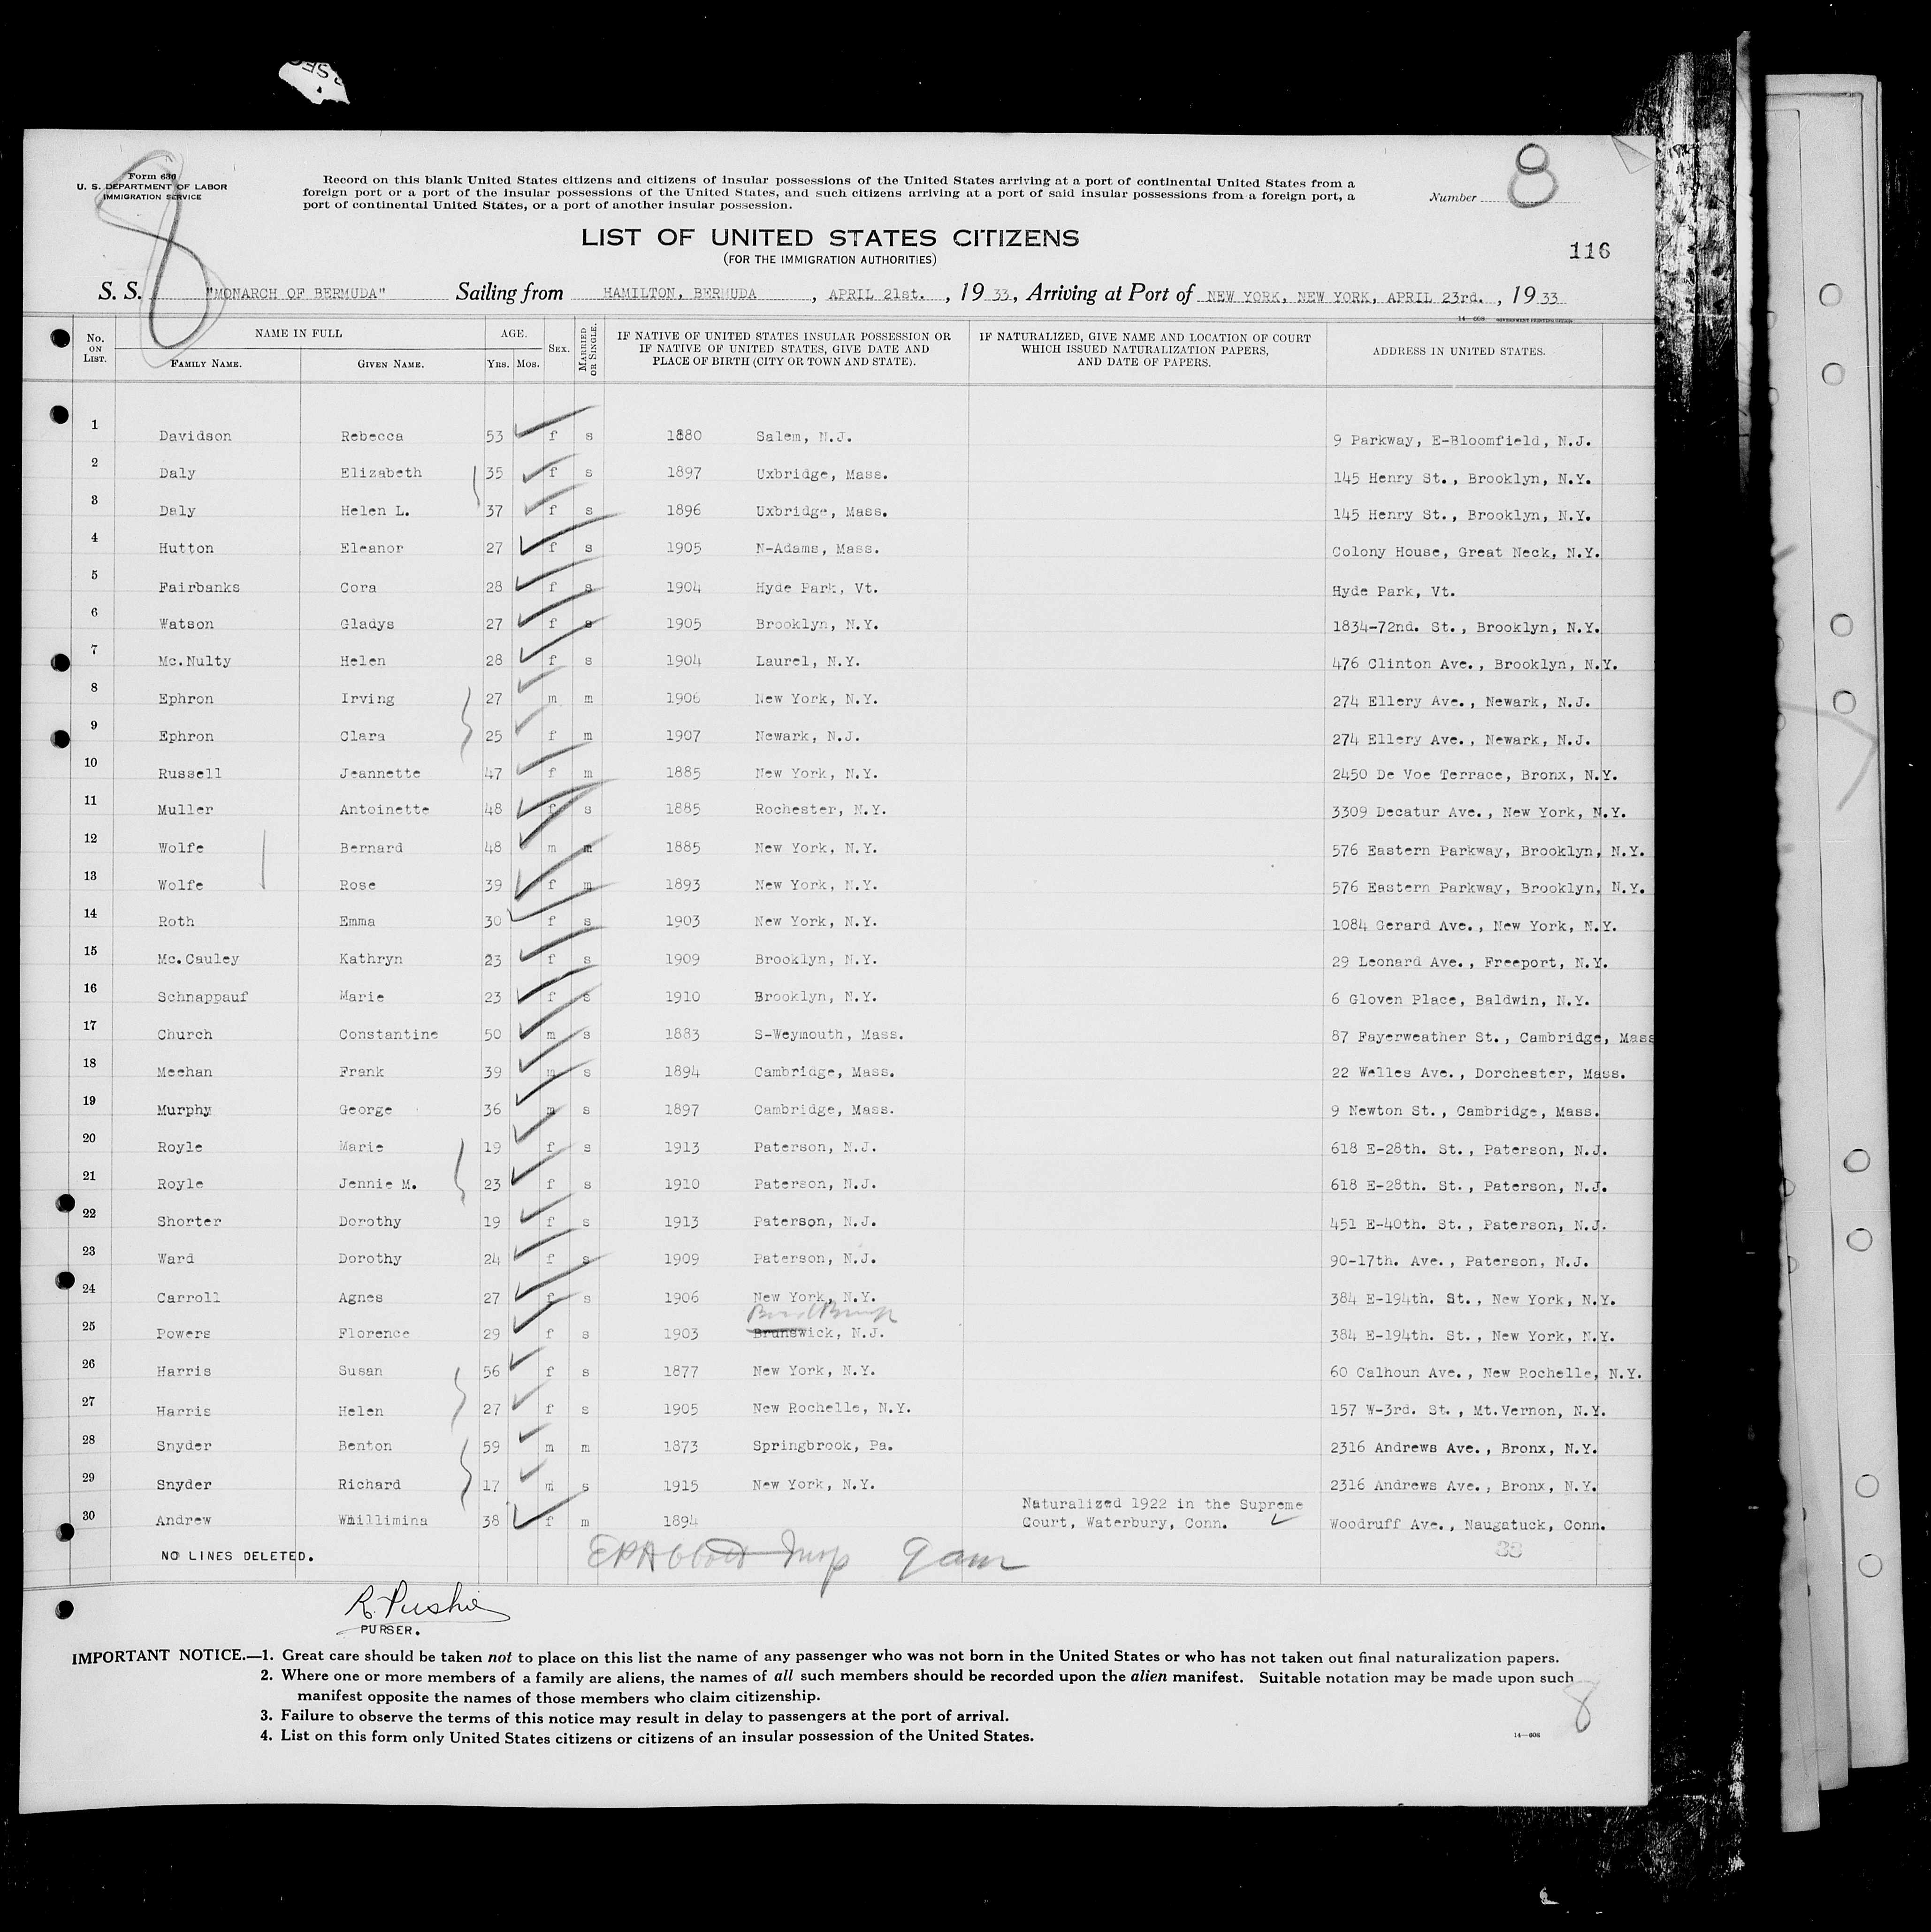 Form 630
U. S. DEPARTMENT OF LABOR
IMMIGRATION SERVICE
8
Record on this blank United States citizens and citizens of insular possessions of the United States arriving at a port of continental United States from a
foreign port or a port of the insular possessions of the United States, and such citizens arriving at a port of said insular possessions from a foreign port, a
port of continental United States, or a port of another insular possession.
Number 8
LIST OF UNITED STATES CITIZENS
(FOR THE IMMIGRATION AUTHORITIES)
116
S. S. "MONARCH OF BERMUDA" Sailing from HAMILTON, BERMUDA, APRIL 21st., 1933, Arriving at Port of NEW YORK, NEW YORK, APRIL 23rd., 1933
14—608 GOVERNMENT PRINTING OFFICE
No. ON LIST. NAME IN FULL FAMILY NAME. GIVEN NAME. AGE. YRS. MOS. SEX. MARRIED OR SINGLE. IF NATIVE OF UNITED STATES INSULAR POSSESSION OR IF NATIVE OF UNITED STATES, GIVE DATE AND PLACE OF BIRTH (CITY OR TOWN AND STATE). IF NATURALIZED, GIVE NAME AND LOCATION OF COURT WHICH ISSUED NATURALIZATION PAPERS, AND DATE OF PAPERS. ADDRESS IN UNITED STATES.
1 Davidson Rebecca 53 f s 1880 Salem, N.J. 9 Parkway, E-Bloomfield, N.J.
2 Daly Elizabeth 35 f s 1897 Uxbridge, Mass. 145 Henry St., Brooklyn, N.Y.
3 Daly Helen L. 37 f s 1896 Uxbridge, Mass. 145 Henry St., Brooklyn, N.Y.
4 Hutton Eleanor 27 f s 1905 N-Adams, Mass. Colony House, Great Neck, N.Y.
5 Fairbanks Cora 28 f s 1904 Hyde Park, Vt. Hyde Park, Vt.
6 Watson Gladys 27 f s 1905 Brooklyn, N.Y. 1834-72nd. St., Brooklyn, N.Y.
7 Mc.Nulty Helen 28 f s 1904 Laurel, N.Y. 476 Clinton Ave., Brooklyn, N.Y.
8 Ephron Irving 27 m m 1906 New York, N.Y. 274 Ellery Ave., Newark, N.J.
9 Ephron Clara 25 f m 1907 Newark, N.J. 274 Ellery Ave., Newark, N.J.
10 Russell Jeannette 47 f m 1885 New York, N.Y. 2450 De Voe Terrace, Bronx, N.Y.
11 Muller Antoinette 48 f s 1885 Rochester, N.Y. 3309 Decatur Ave., New York, N.Y.
12 Wolfe Bernard 48 m m 1885 New York, N.Y. 576 Eastern Parkway, Brooklyn, N.Y.
13 Wolfe Rose 39 f m 1893 New York, N.Y. 576 Eastern Parkway, Brooklyn, N.Y.
14 Roth Emma 30 f s 1903 New York, N.Y. 1084 Gerard Ave., New York, N.Y.
15 Mc.Cauley Kathryn 23 f s 1909 Brooklyn, N.Y. 29 Leonard Ave., Freeport, N.Y.
16 Schnappauf Marie 23 f s 1910 Brooklyn, N.Y. 6 Gloven Place, Baldwin, N.Y.
17 Church Constantine 50 m s 1883 S-Weymouth, Mass. 87 Fayerweather St., Cambridge, Mass
18 Meehan Frank 39 m s 1894 Cambridge, Mass. 22 Welles Ave., Dorchester, Mass.
19 Murphy George 36 m s 1897 Cambridge, Mass. 9 Newton St., Cambridge, Mass.
20 Royle Marie 19 f s 1913 Paterson, N.J. 618 E-28th. St., Paterson, N.J.
21 Royle Jennie M. 23 f s 1910 Paterson, N.J. 618 E-28th. St., Paterson, N.J.
22 Shorter Dorothy 19 f s 1913 Paterson, N.J. 451 E-40th. St., Paterson, N.J.
23 Ward Dorothy 24 f s 1909 Paterson, N.J. 90-17th. Ave., Paterson, N.J.
24 Carroll Agnes 27 f s 1906 New York, N.Y. 384 E-194th. St., New York, N.Y.
25 Powers Florence 29 f s 1903 Brunswick, N.J. 384 E-194th. St., New York, N.Y.
26 Harris Susan 56 f s 1877 New York, N.Y. 60 Calhoun Ave., New Rochelle, N.Y.
27 Harris Helen 27 f s 1905 New Rochelle, N.Y. 157 W-3rd. St., Mt.Vernon, N.Y.
28 Snyder Benton 59 m m 1873 Springbrook, Pa. 2316 Andrews Ave., Bronx, N.Y.
29 Snyder Richard 17 m s 1915 New York, N.Y. 2316 Andrews Ave., Bronx, N.Y.
30 Andrew Whillimina 38 f m 1894 Naturalized 1922 in the Supreme Court, Waterbury, Conn. Woodruff Ave., Naugatuck, Conn.
NO LINES DELETED.
EPAbbott Insp 9 am
R. Pushie
PURSER.
IMPORTANT NOTICE.—1. Great care should be taken not to place on this list the name of any passenger who was not born in the United States or who has not taken out final naturalization papers.
2. Where one or more members of a family are aliens, the names of all such members should be recorded upon the alien manifest. Suitable notation may be made upon such
manifest opposite the names of those members who claim citizenship.
3. Failure to observe the terms of this notice may result in delay to passengers at the port of arrival.
4. List on this form only United States citizens or citizens of an insular possession of the United States.
14—608
8